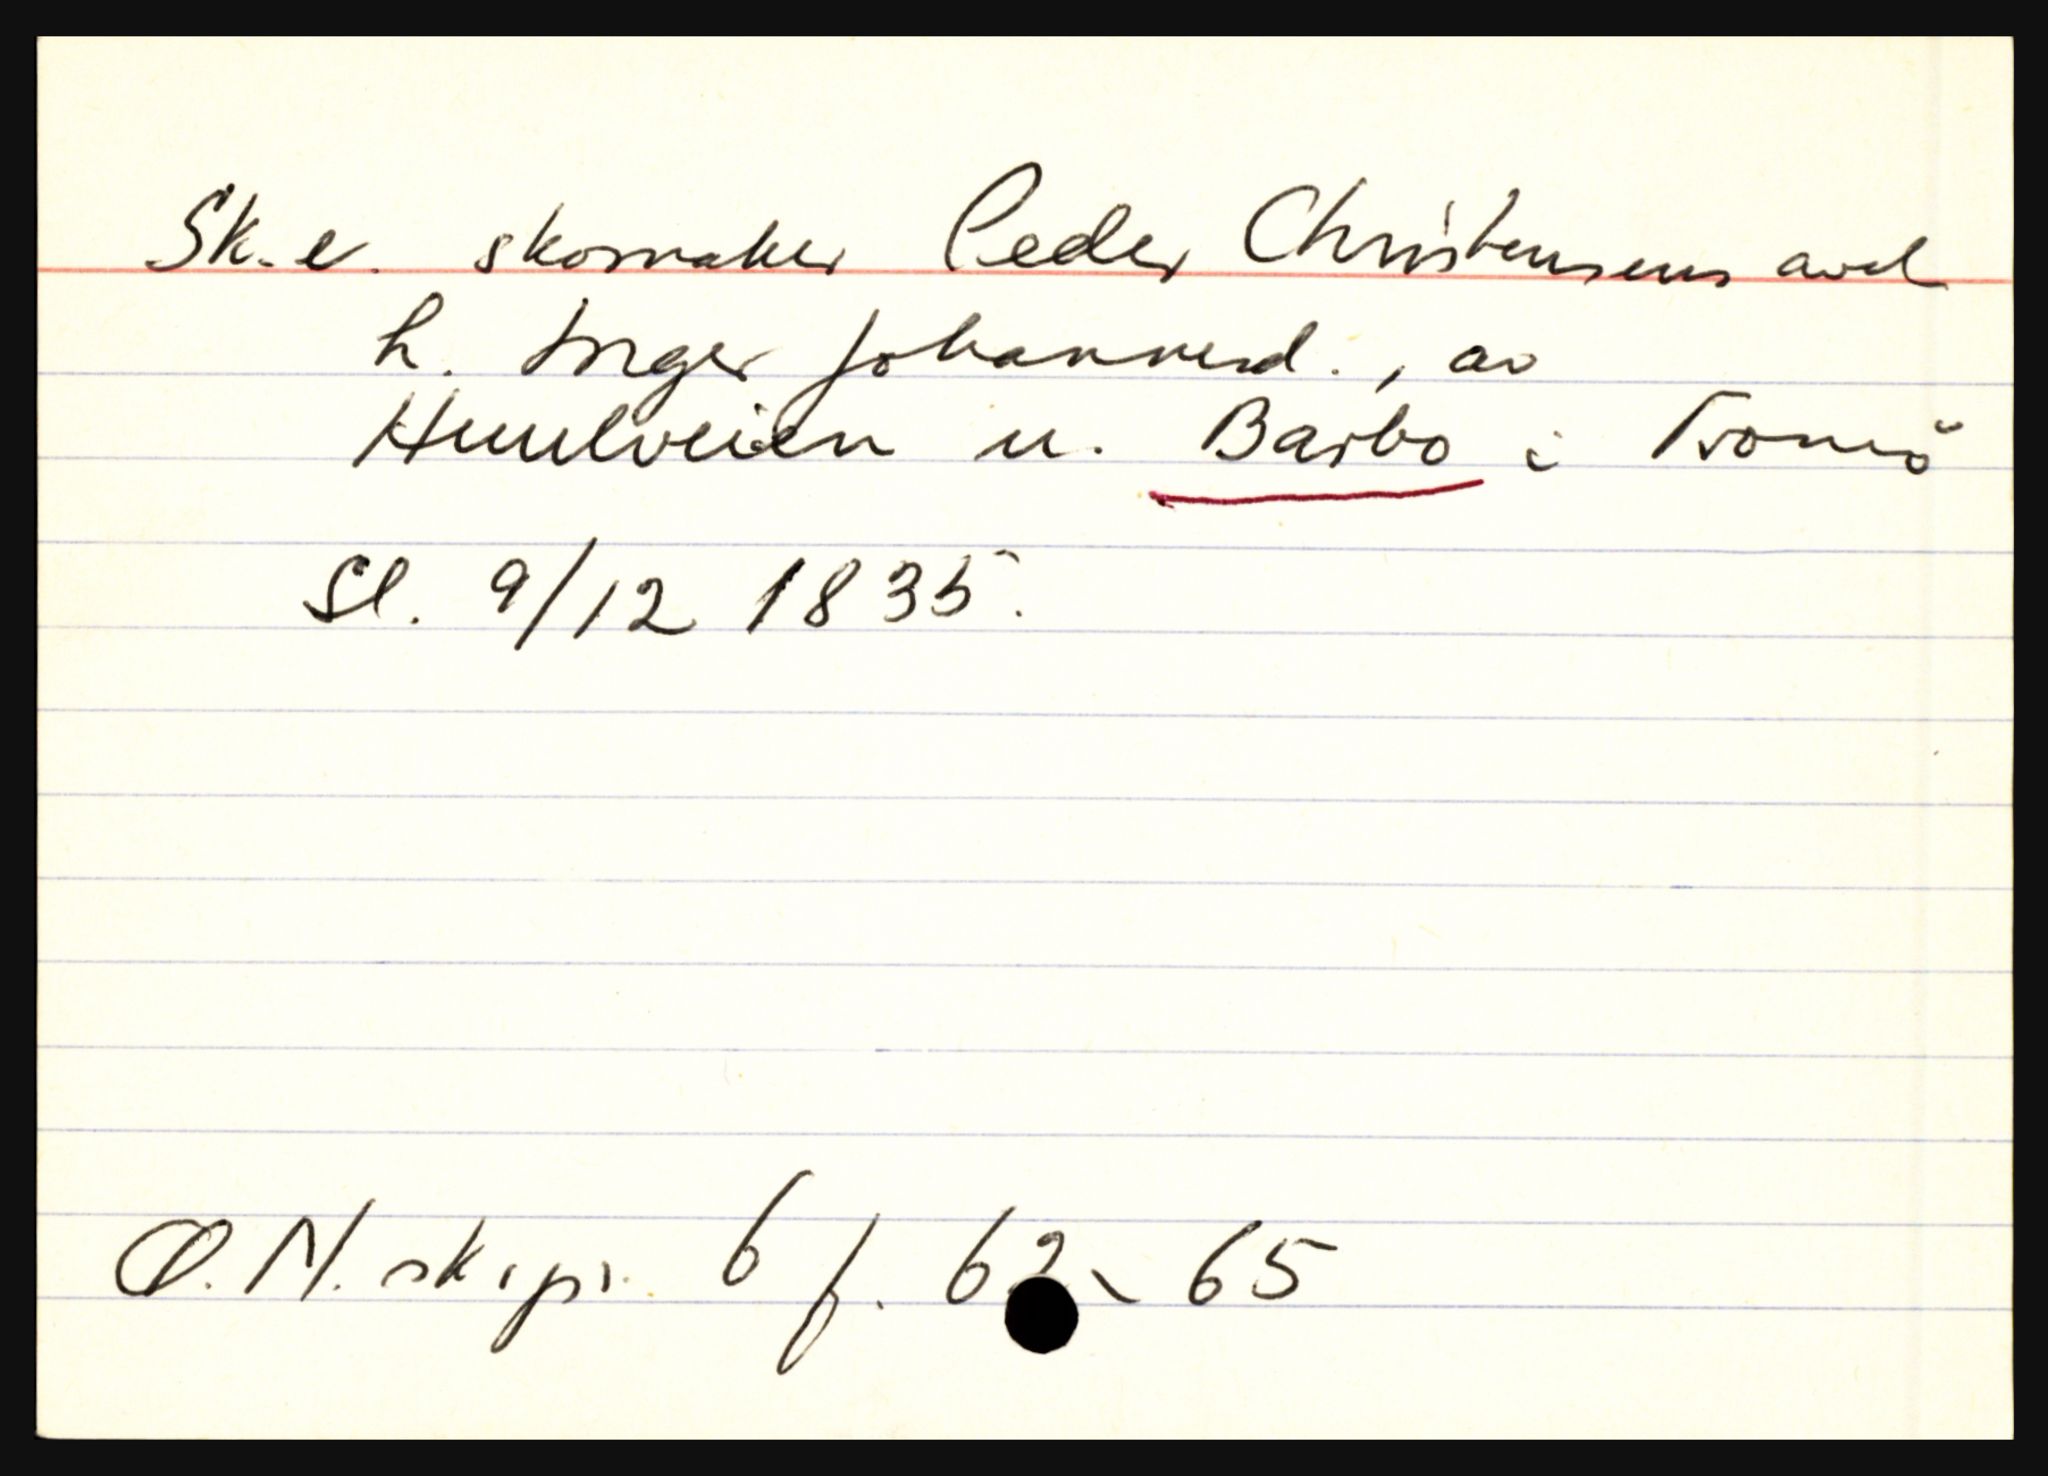 Sk. e. skomaker Peder Christensens avd
h. Inger Johannesd., av
Huulveien u. Barbo i Tromö
Sl. 9/12 1835.
Ø. N. sk.pr. 6 f. 62, 65